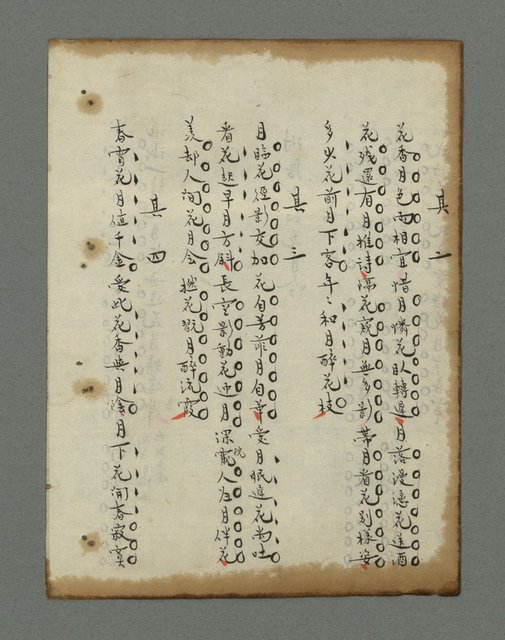 其二
花香月色兩相宜惜月憐花臥轉遲月落漫憑花送酒
花殘還有月催詩隔花窺月無多影帶月看花別樣姿
多少花前月下客年〻和月醉花枝
其三
月臨花徑影交加花自芳菲月自華愛月眠遲花尚吐
看花起早月方斜長空影動花迎月深院人歸月伴花
羨却人間花月令撚花翫月醉流霞
其四
春宵花月值千金愛此花香與月陰月下花開春寂寞